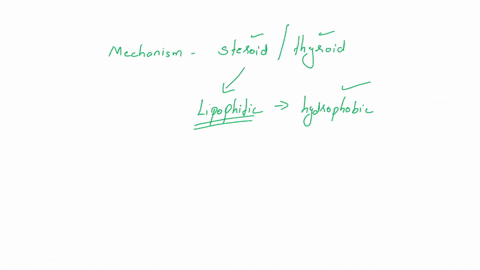 Mechanism - steroid / thyroid
Lipophilic → hydrophobic